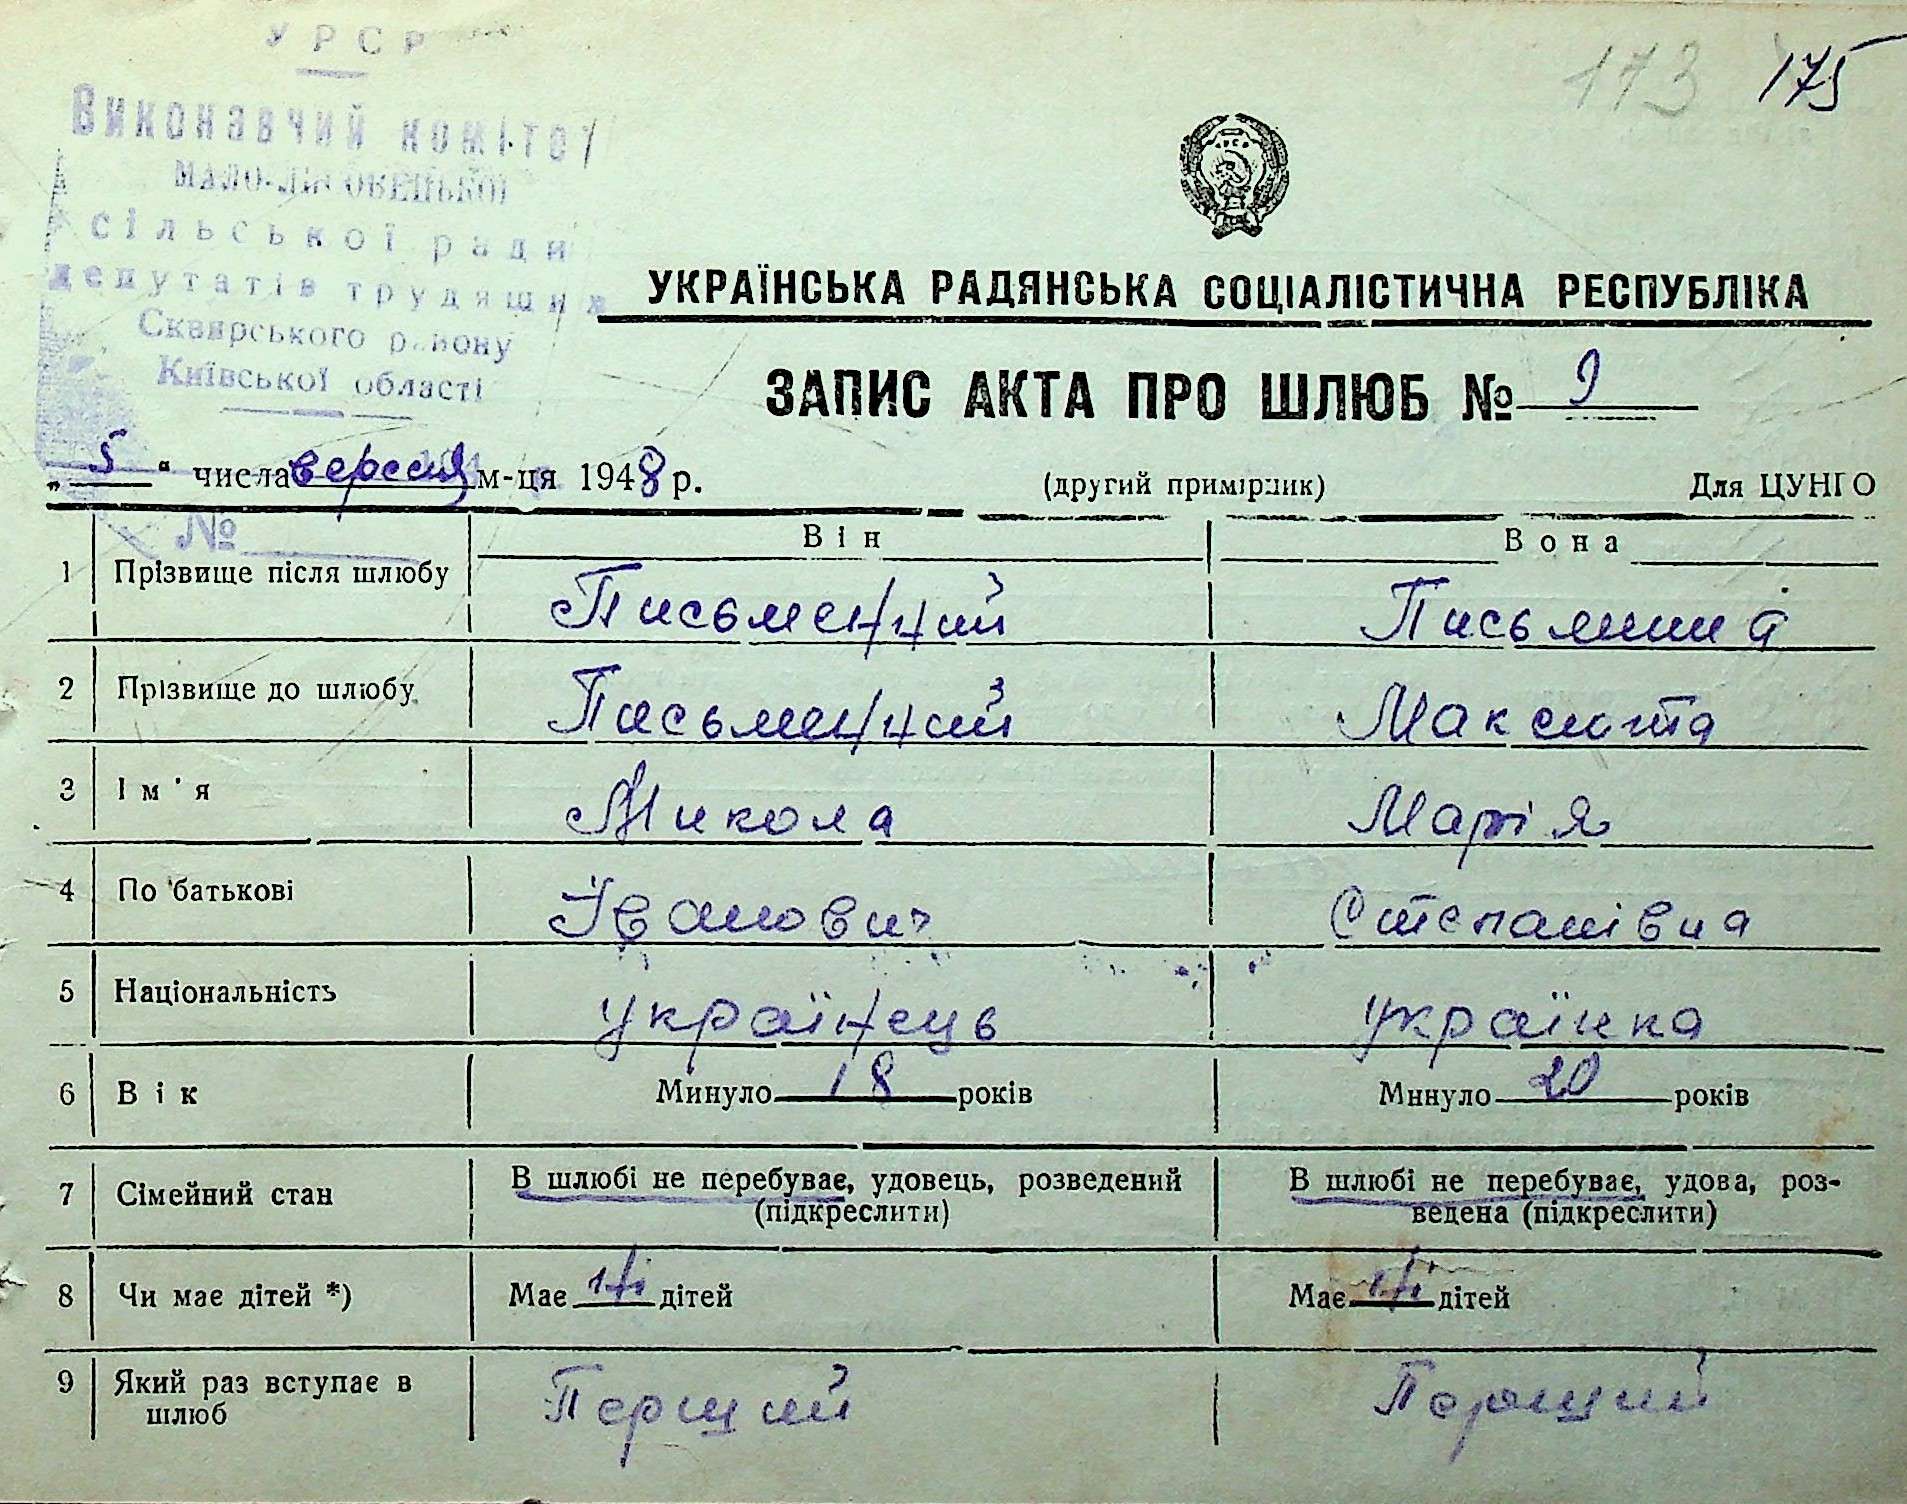 УРСР
Виконавчий комітет
сільської ради
депутатів трудящих
Сквирського району
Київської області
173 175
УКРАЇНСЬКА РАДЯНСЬКА СОЦІАЛІСТИЧНА РЕСПУБЛІКА
ЗАПИС АКТА ПРО ШЛЮБ № 9
„5“ числа вересня м-ця 1948 р. (другий примірник) Для ЦУНГО
№
Він Вона
1 Прізвище після шлюбу Письменний Письменна
2 Прізвище до шлюбу Письменний Максюта
3 Ім'я Микола Марія
4 По батькові Іванович Степанівна
5 Національність українець українка
6 Вік Минуло 18 років Минуло 20 років
7 Сімейний стан В шлюбі не перебуває, удовець, розведений В шлюбі не перебуває, удова, роз-
(підкреслити) ведена (підкреслити)
8 Чи має дітей *) Має дітей Має дітей
9 Який раз вступає в Перший Перший
шлюб